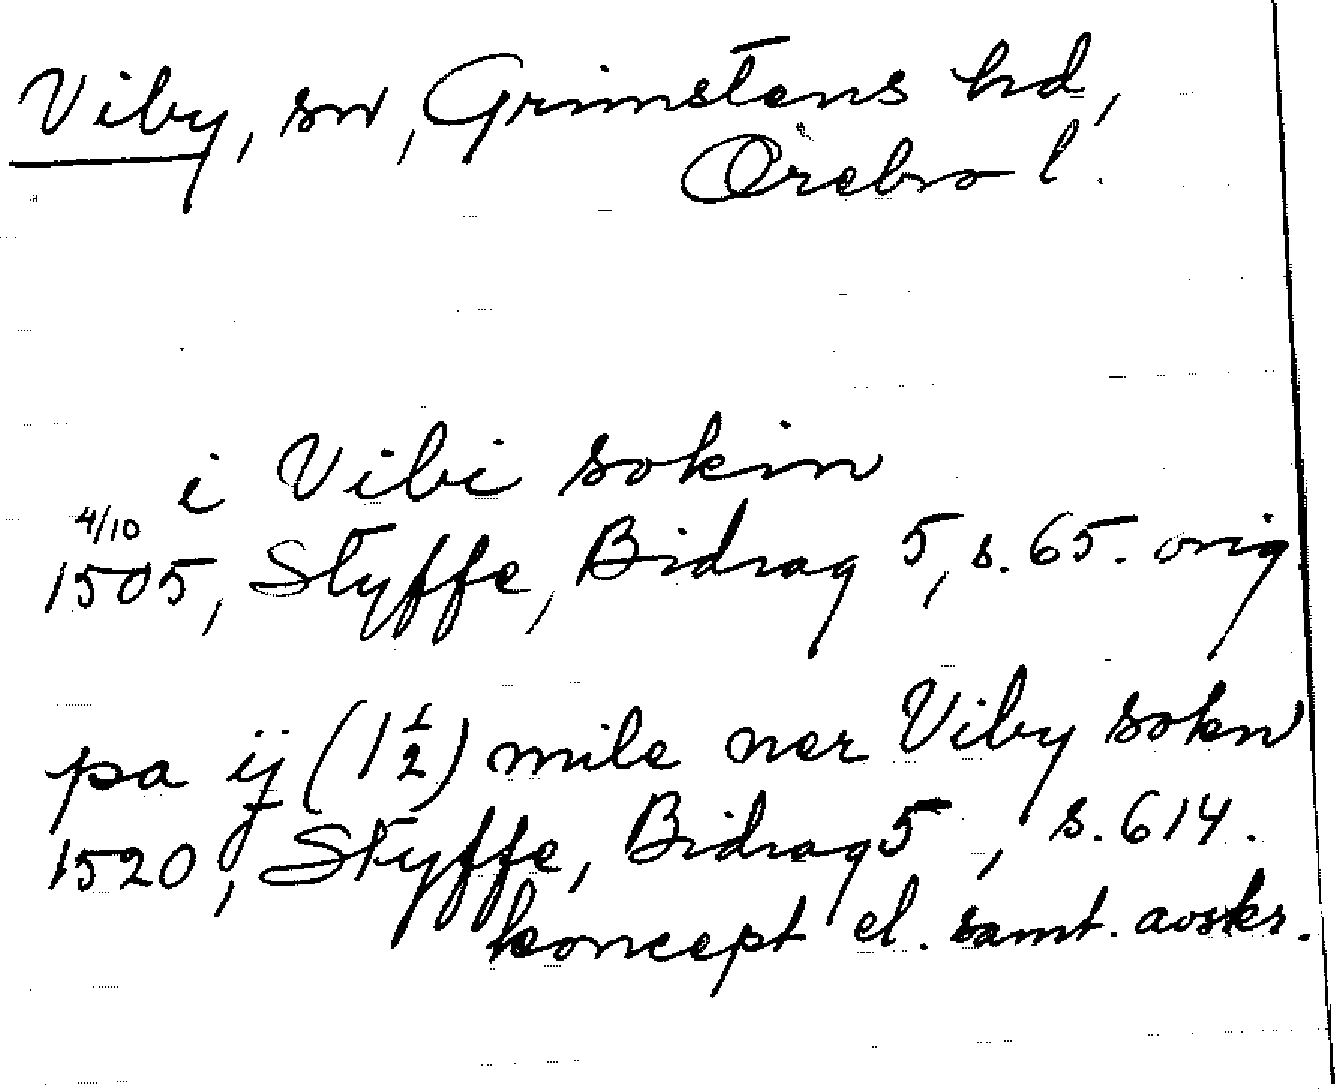 Viby, sn, Grimstens hd,
Örebro l.
i Vibi sokin
4/10
1505, Styffe, Bidrag 5, s. 65. orig
pa ij (1 1/2) mile ner Viby sokn
1520, Styffe, Bidrag 5, s. 614.
koncept el. samt. avskr.